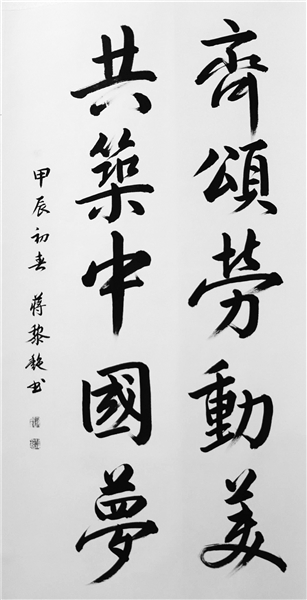 齊頌勞動美
共築中國夢
甲辰初春 蔣黎艶书